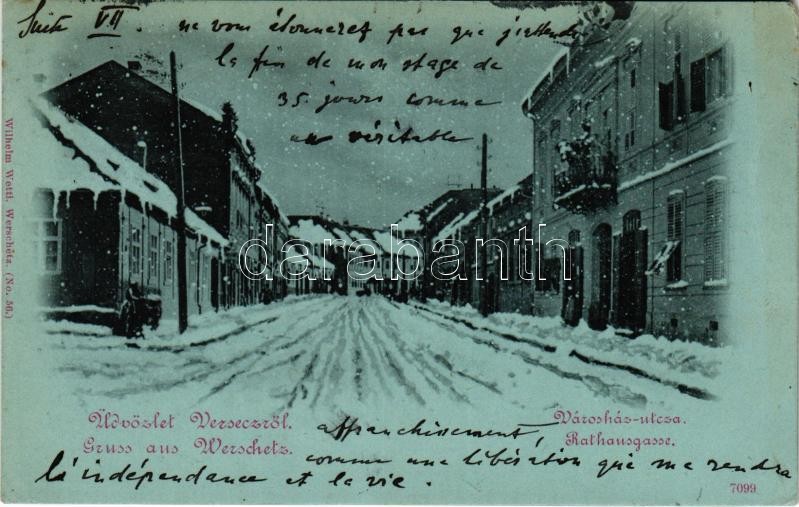 Suite VII. ne vous étonnerez pas que j'attende
la fin de mon stage de
35 jours comme
un véritable
darabanth
Wilhelm Wettl, Werschetz. (No. 56.)
Üdvözlet Verseczről.
Gruss aus Werschetz.
Városház-utcza.
Rathausgasse.
affranchissement
comme une libération que me rendra
là indépendance et la vie.
7099